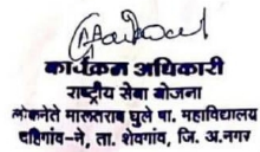 कार्यक्रम अधिकारी
राष्ट्रीय सेवा योजना
लोकनेते मालतराब घुले पा. महाविद्यालय
दहिगांव-ने, ता. शेवगांव, जि. अ.नगर